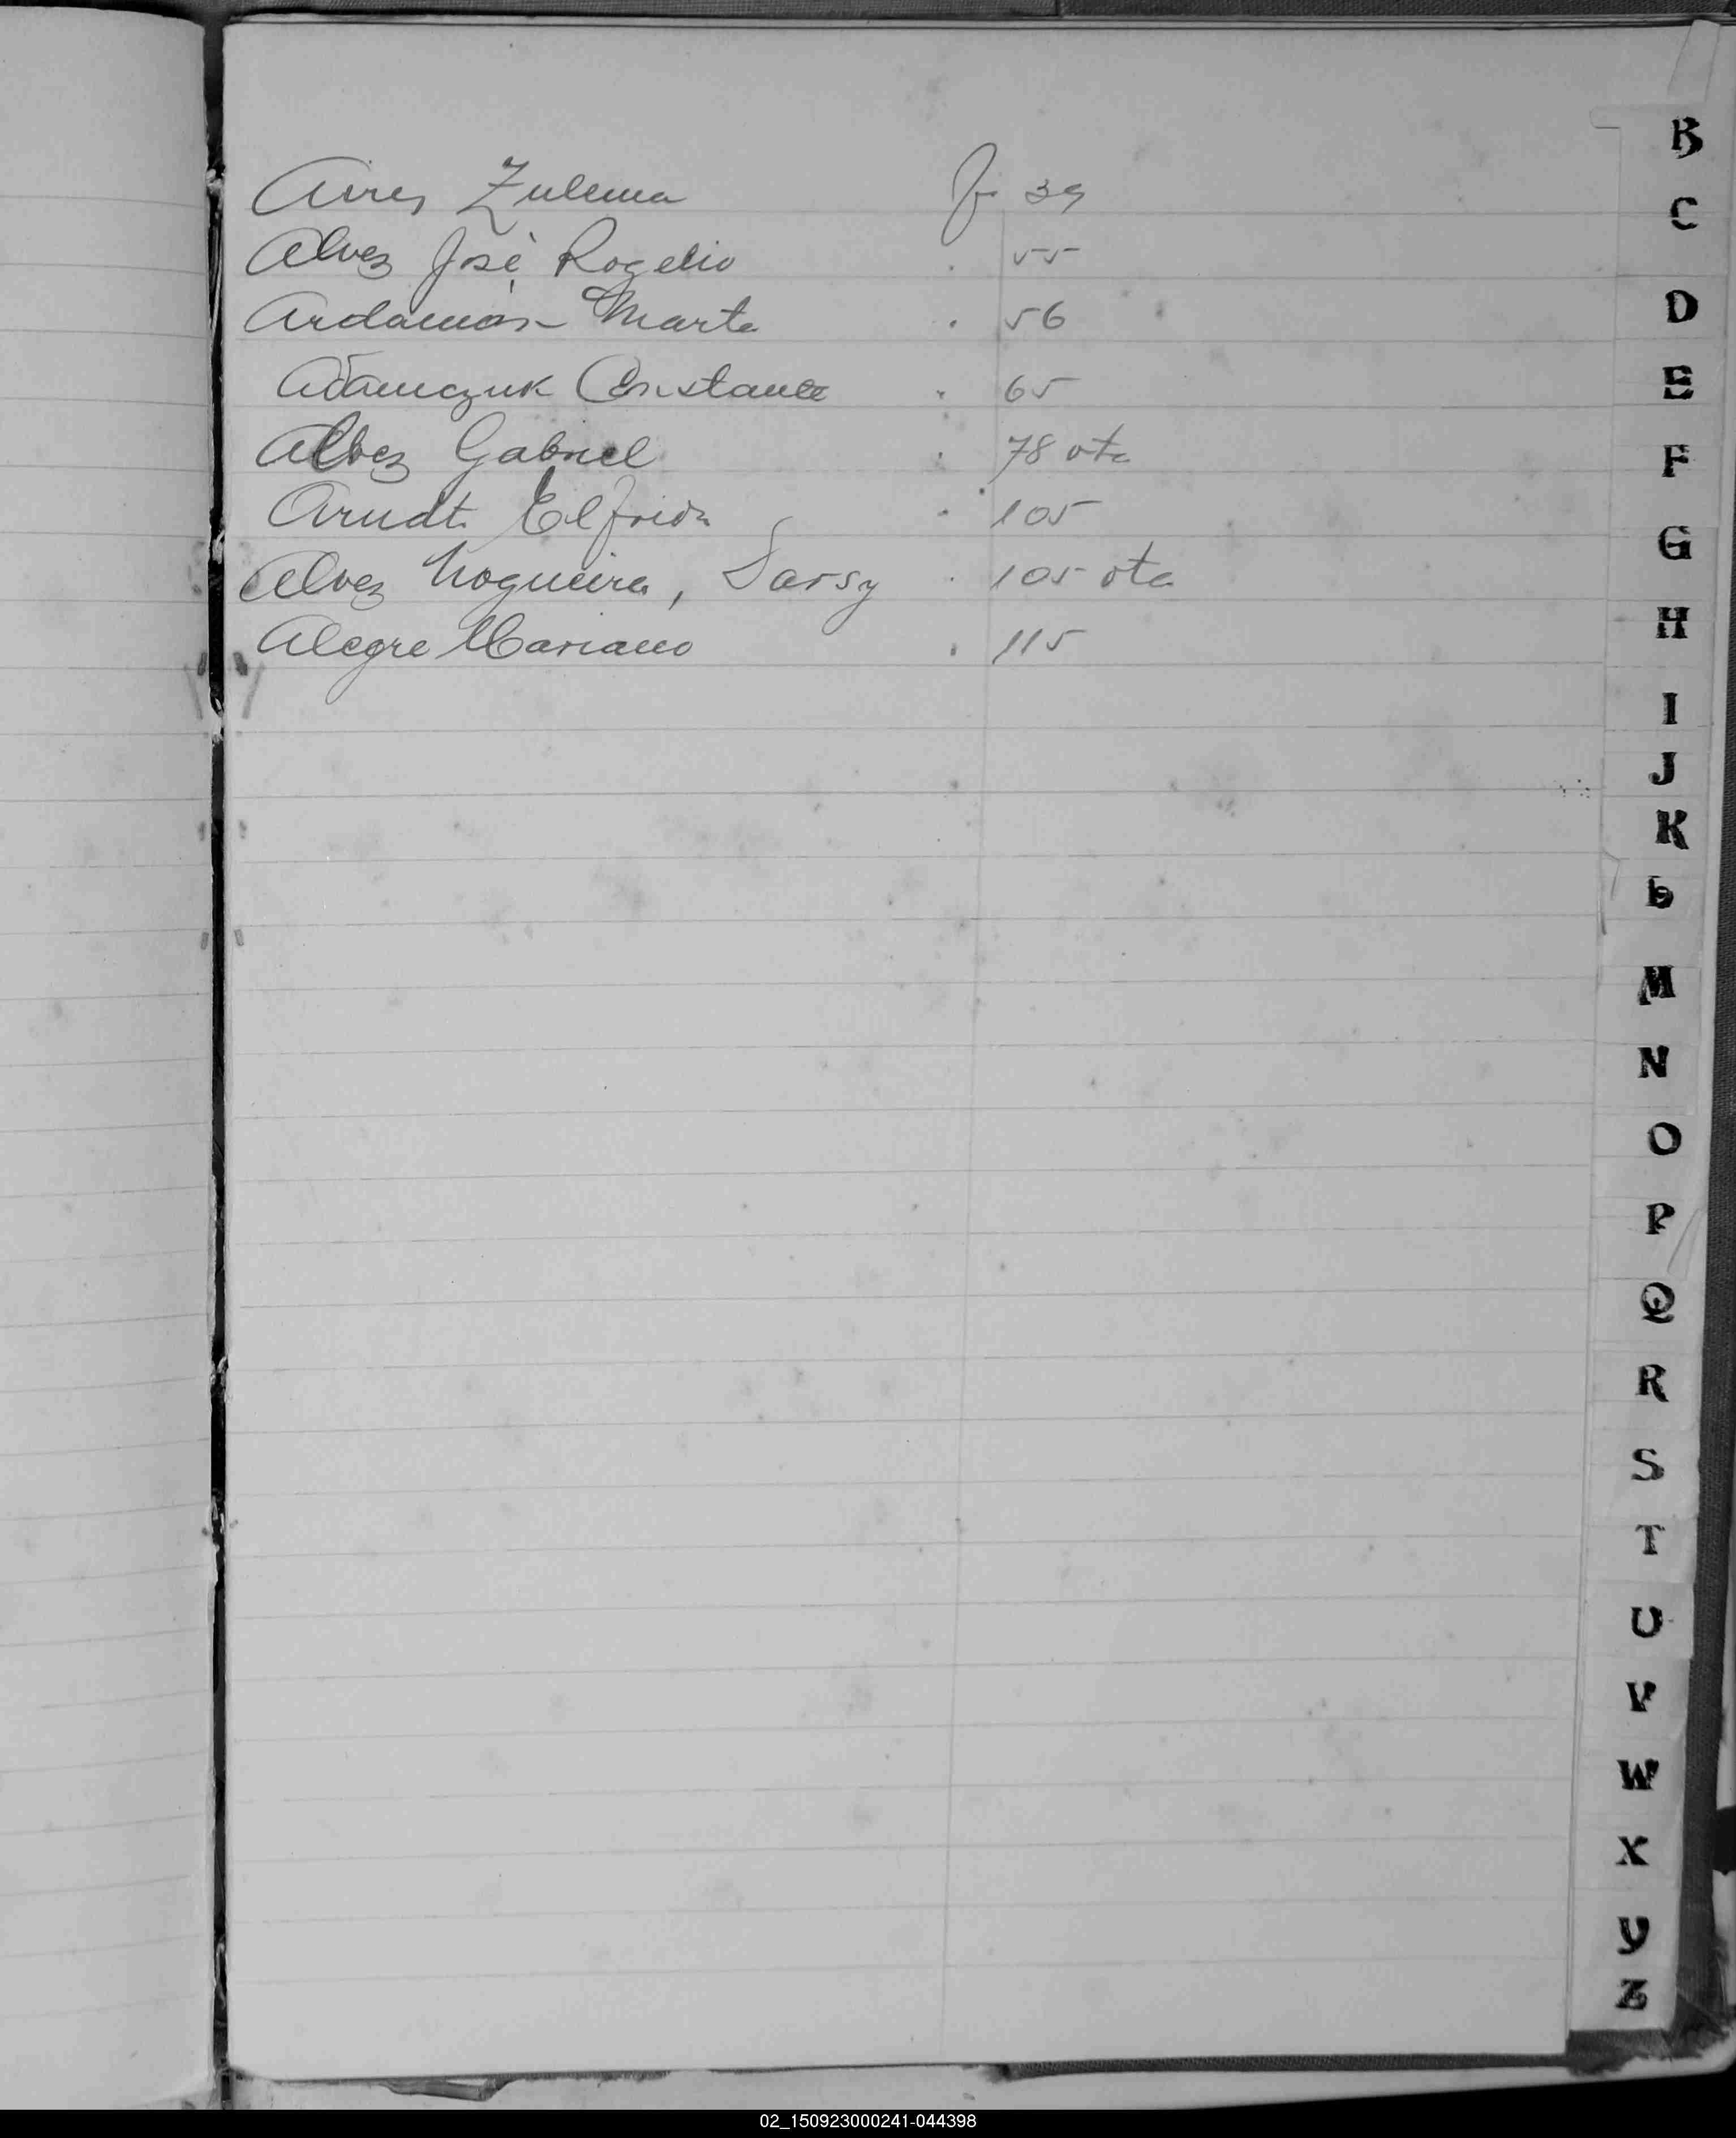 Aires Zulema fo 39
Alvez José Rogelio . 55
Ardamás Marta . 56
Adamczuk Constante . 65
Alvez Gabriel . 78 vta
Arndt Elfrida . 105
Alvez Nogueira, Darsy . 105 vta
Alegre Mariano . 115
B
C
D
E
F
G
H
I
J
K
L
M
N
O
P
Q
R
S
T
U
V
W
X
Y
Z
02_150923000241-044398